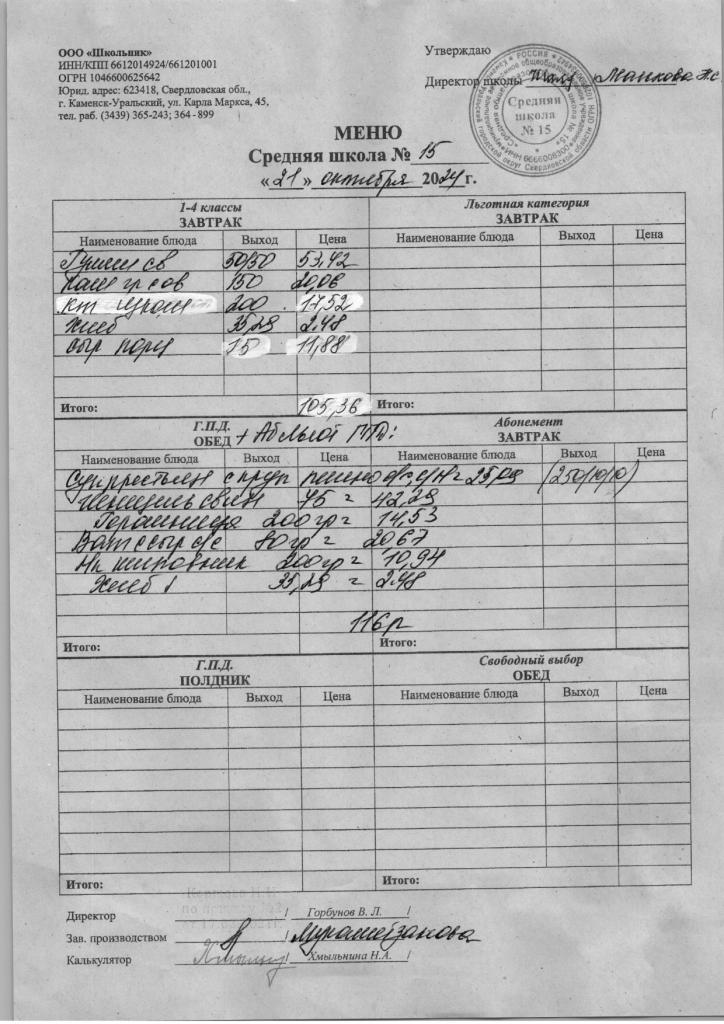 ООО «Школьник»
ИНН/КПП 6612014924/661201001
ОГРН 1046600625642
Юрид. адрес: 623418, Свердловская обл.,
г. Каменск-Уральский, ул. Карла Маркса, 45,
тел. раб. (3439) 365-243; 364-899
Утверждаю
Директор школы
Средняя школа № 15
МЕНЮ
Средняя школа № 15
«21» октября 2024 г.
1-4 классы
ЗАВТРАК
Льготная категория
ЗАВТРАК
Наименование блюда Выход Цена Наименование блюда Выход Цена
Гуляш св 50/50 53,42
150 20,06
200 17,52
Хлеб 35,29 2.48
Сыр порц 15 11,88
Итого: 105,36 Итого:
Г.П.Д.
ОБЕД
Абонемент
ЗАВТРАК
Наименование блюда Выход Цена Наименование блюда Выход Цена
Суп крестьян с круп 25,09 (250/10/10)
свин 75 = 42,29
200гр = 14,53
80гр = 2067
Нк шиповник 200гр = 10,94
Хлеб 35,29 = 2.48
116р
Итого: Итого:
Г.П.Д.
ПОЛДНИК
Свободный выбор
ОБЕД
Наименование блюда Выход Цена Наименование блюда Выход Цена
Итого: Итого:
Директор / Горбунов В. Л. /
Зав. производством /
Калькулятор / Хмыльнина Н.А. /